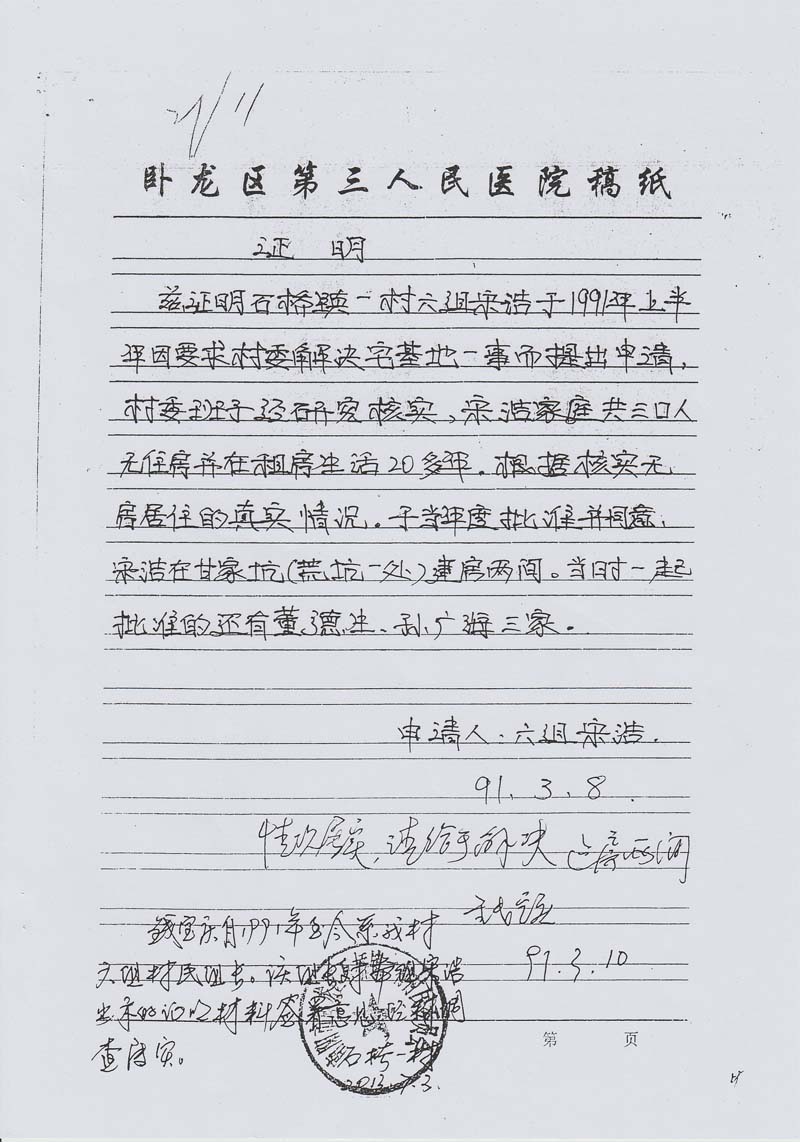 21/11
卧龙区第三人民医院稿纸
证 明
兹证明石桥镇一村六组宋浩于1991年上半
年因要求村委解决宅基地一事而提出申请,
村委班子经研究核实、宋浩家庭共三口人
无住房并在租房生活20多年.根据核实无
房居住的真实情况.于当年度批准并同意,
宋浩在甘家坑(荒坑一处)建房两间。当时一起
批准的还有董德生、孙广海三家.
申请人:六组宋浩.
91.3.8.
情况属实,请给予解决 建房两间
91.3.10
钱宝庆自1991年至今系我村
六组村民组长。该组长对宋浩
出示的证明材料签署意见经调
查属实。
石桥一村
2013.7.3.
第 页